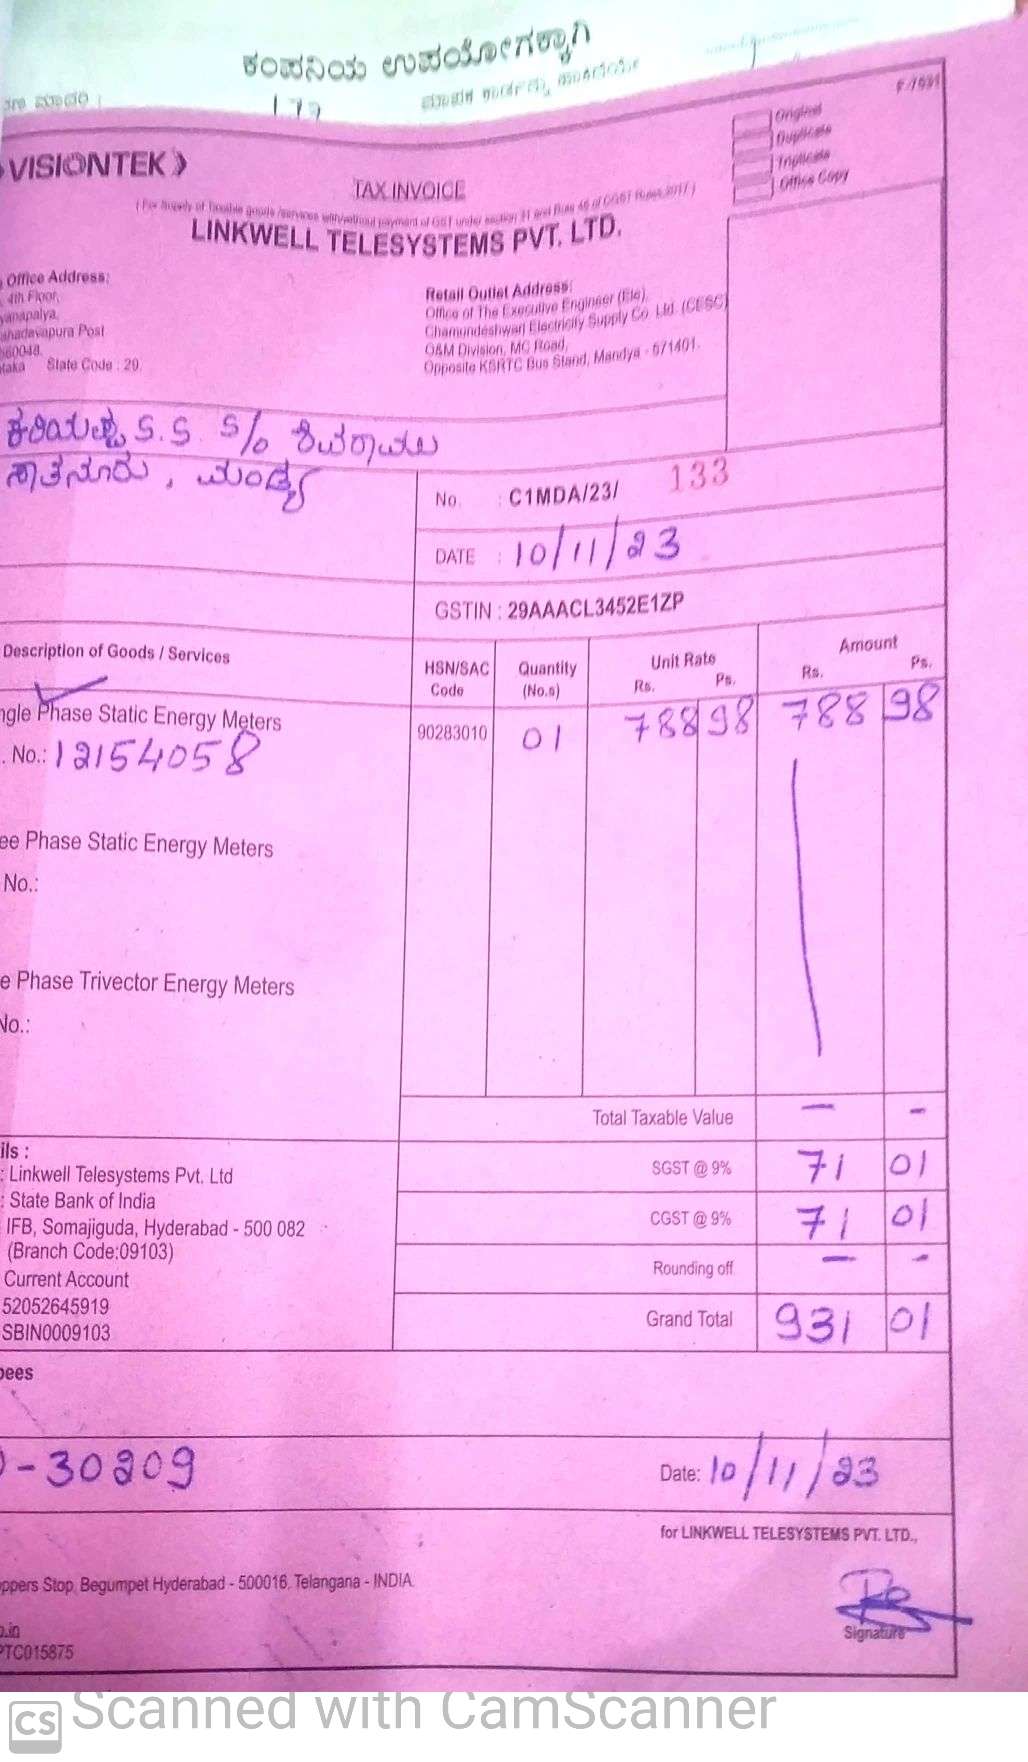 ಕಂಪನಿಯ ಉಪಯೋಗಕ್ಕಾಗಿ
VISIONTEK
TAX INVOICE
Original
Duplicate
Triplicate
Office Copy
( For Supply of Taxable goods /services with/without payment of GST under section 31 and Rule 46 of CGST Rules,2017 )
LINKWELL TELESYSTEMS PVT. LTD.
Office Address:
4th Floor,
yanapalya,
ahadevapura Post
560048.
taka State Code : 29.
Retail Outlet Address:
Office of The Executive Engineer (Ele),
Chamundeshwari Electricity Supply Co. Ltd. (CESC)
O&M Division, MC Road,
Opposite KSRTC Bus Stand, Mandya - 571401.
ಕರಿಯಪ್ಪ S.S. S/o ಶಿವರಾಮು
ಸಾತನೂರು, ಮಂಡ್ಯ
No. : C1MDA/23/ 133
DATE : 10/11/23
GSTIN : 29AAACL3452E1ZP
Description of Goods / Services HSN/SAC Code Quantity (No.s) Unit Rate Rs. Ps. Amount Rs. Ps.
ngle Phase Static Energy Meters 90283010 01 788 98 788 98
. No.: 12154058
ee Phase Static Energy Meters
No.:
e Phase Trivector Energy Meters
No.:
Total Taxable Value — -
ils :
: Linkwell Telesystems Pvt. Ltd SGST @ 9% 71 01
: State Bank of India
IFB, Somajiguda, Hyderabad - 500 082 CGST @ 9% 71 01
(Branch Code:09103)
Current Account Rounding off — -
52052645919 Grand Total 931 01
SBIN0009103
pees
-30209 Date: 10/11/23
for LINKWELL TELESYSTEMS PVT. LTD.,
oppers Stop, Begumpet Hyderabad - 500016. Telangana - INDIA.
Signature
o.in
PTC015875
CS Scanned with CamScanner